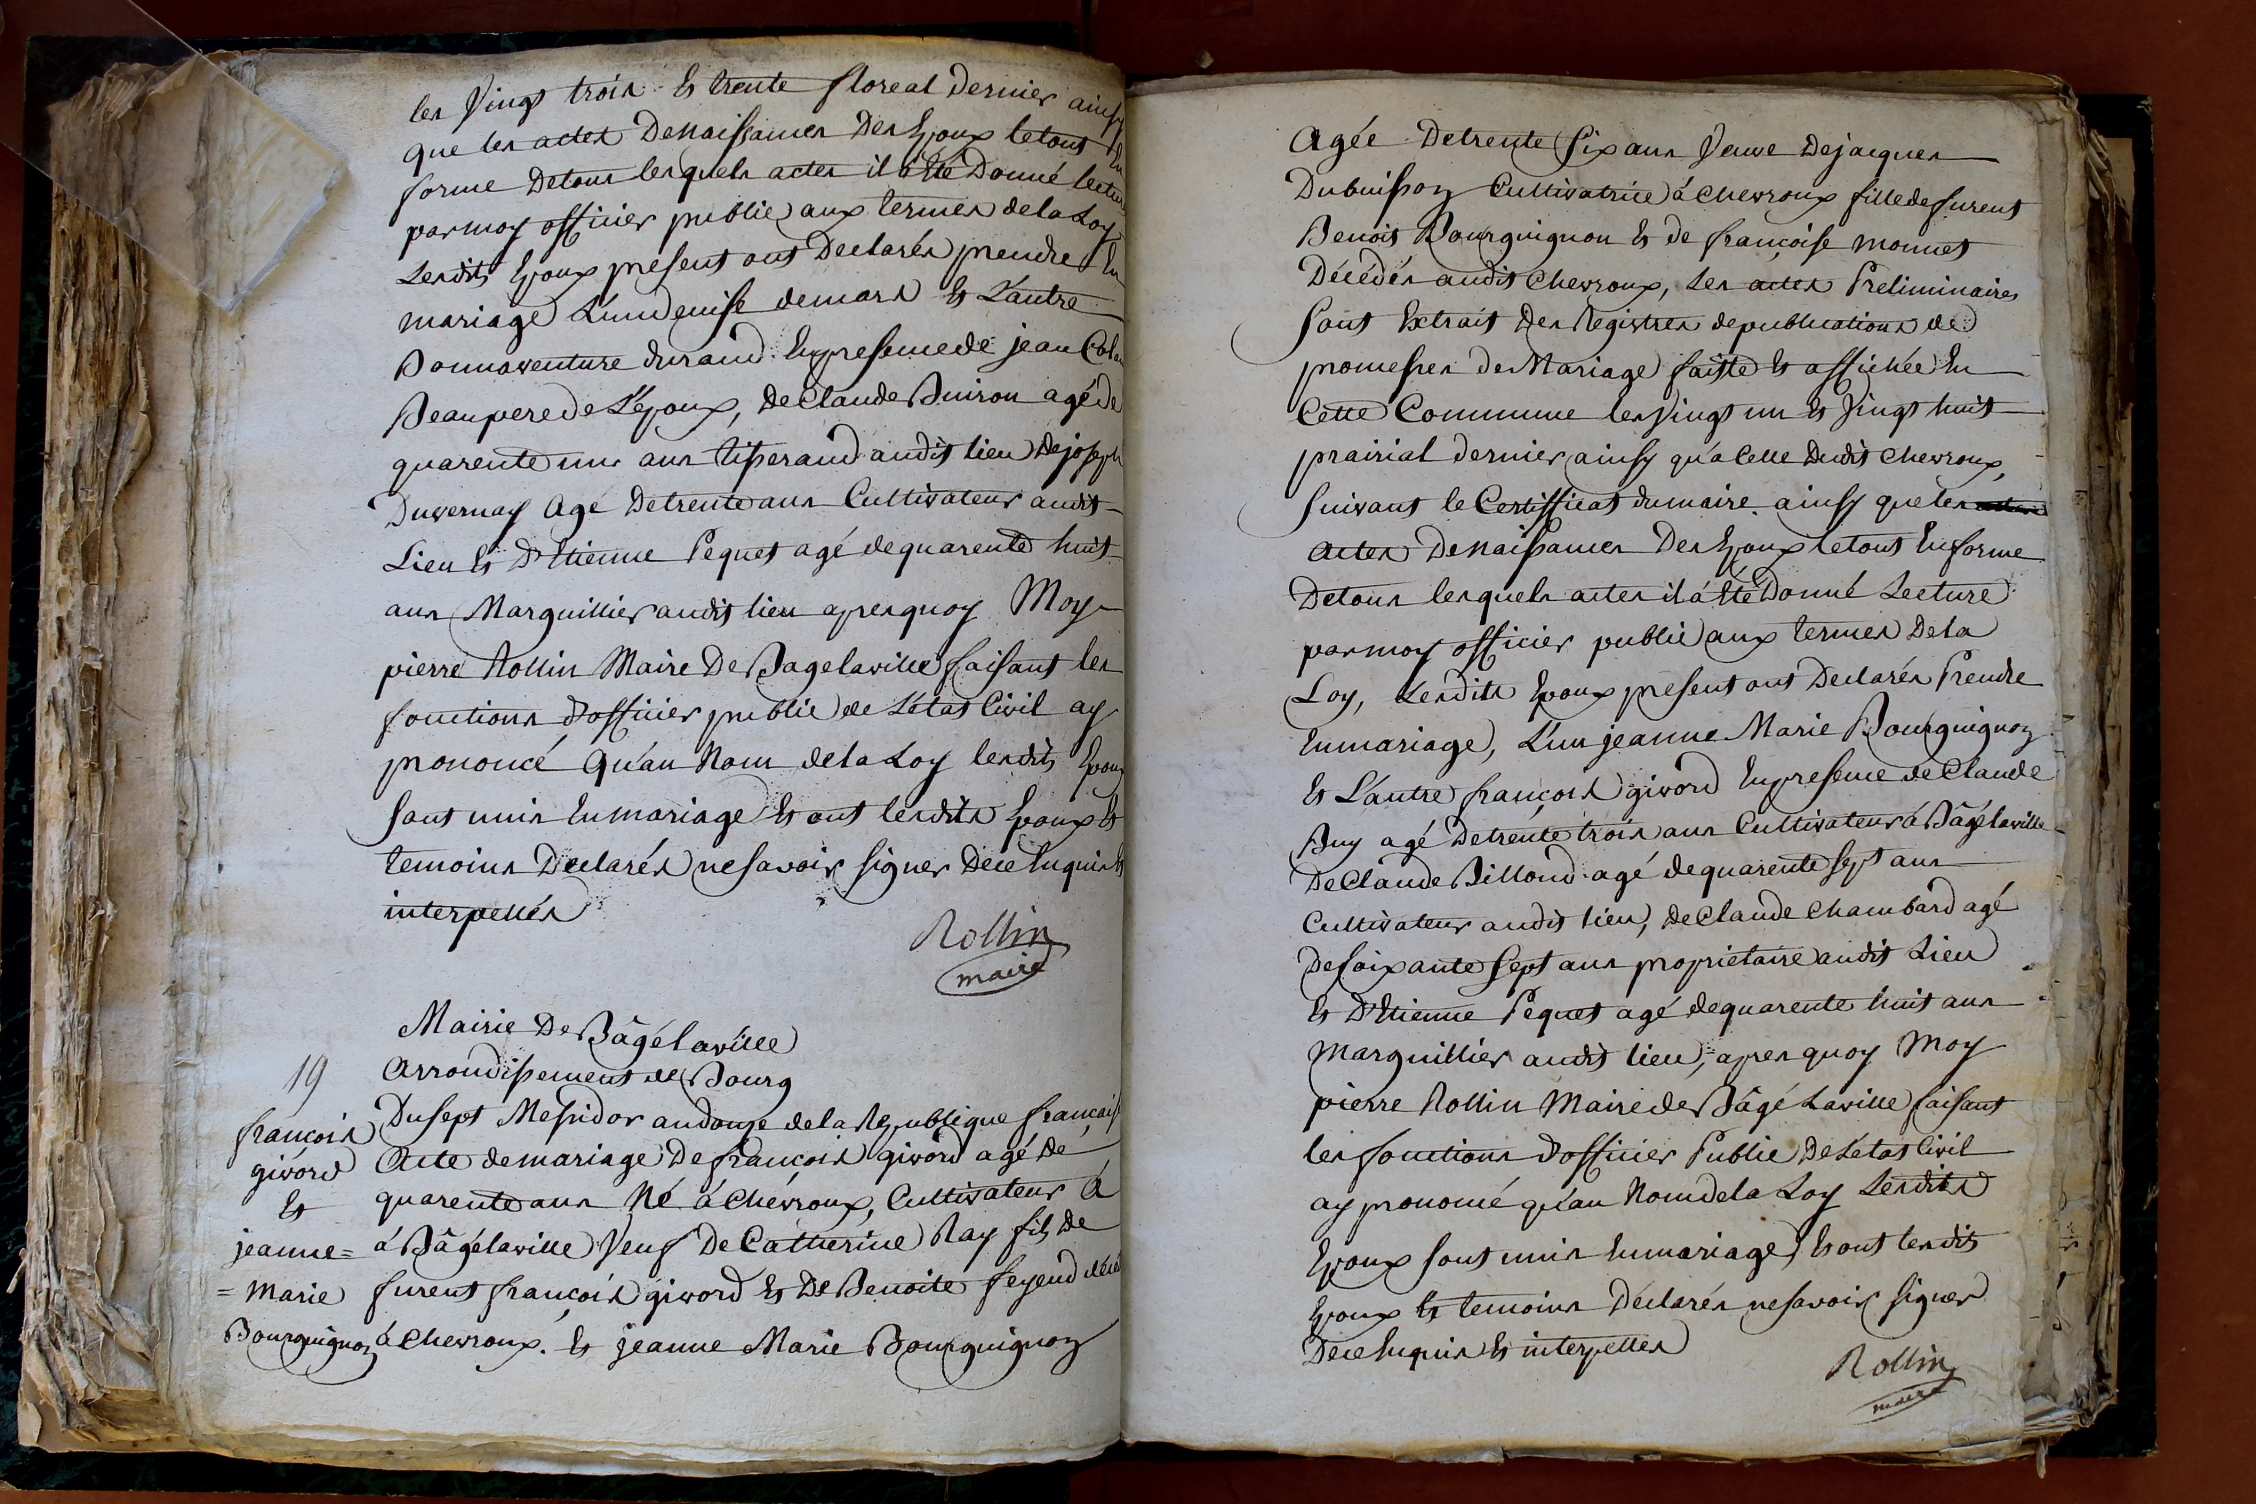 les Vingt trois Et trente floreal Dernier ainsy
que les actes Denaissances Des Epoux letout En
forme Detous lesquels actes il a Eté Donné lecture
par moy officier public aux termes dela Loy
Lesdits Epoux présent ont Declarés prendre En
mariage L'un denise demars Et L'autre
Bonnaventure durand En presence de jean Colas
Beaupere de L'Epoux, de Claude Buiron agé de
quarente un ans tisserand audit lieu de joseph
Duvernay Agé Detrente ans Cultivateur audit
Lieu Et D'Etienne Pequet agé de quarente huit
ans Marguillier audit lieu apres quoy Moy
pierre Rollin Maire De Bagelaville faisant les
fonctions d'officier public de L'état Civil ay
prononcé Qu'au Nom dela Loy lesdits Epoux
sont unis En mariage Et ont lesdits Epoux Et
temoins Declarés ne savoir signer De ce Enquis Et
interpellés
Rollin
maire
Mairie De Bâgélaville
Arrondissement de Bourg
19
françois
givord
Et
jeanne=
=Marie
Bourguignon
Du sept Messidor an douze dela Republique française
Acte de mariage De françois givord agé De
quarente ans Né à Chevroux, Cultivateur à
à Bâgélaville Veuf De Catherine Ray fils De
furent françois givord Et De Benoite feyend décédés
à Chevroux. Et jeanne Marie Bourguignon
Agée Detrente six ans Veuve De jacques
Dubuisson Cultivatrice à Chevroux fille de furent
Benoit Bourguignon Et de françoise monnet
Décédés audit Chevroux, Les actes Préliminaires
sont Extrait Des Registres de publications de
promesses de Mariage faitte Et affichée En
Cette Commune les Vingt un Et Vingt huit
prairial dernier ainsy qu'a Celle Dudit Chevroux,
suivant le Certifficat du maire ainsy que les
actes De naissances Des Epoux le tout En forme
De tous lesquels actes il à Eté Donné Lecture
par moy officier public aux termes De la
Loy, Lesdits Epoux présent ont Declarés Prendre
En mariage, L'un jeanne Marie Bourguignon
Et L'autre françois givord En presence de Claude
Buy agé Detrente trois ans Cultivateur à Bâgélaville
De Claude Billoud agé de quarente sept ans
Cultivateur audit lieu, de Claude Chambard agé
De soixante sept ans propriétaire audit Lieu
Et D'Etienne Pequet agé de quarente huit ans
Marguillier audit lieu, apres quoy Moy
pierre Rollin Maire de Bâgé Laville faisant
les fonctions d'officier Public De L'état Civil
ay prononcé qu'au Nom de la Loy Lesdits
Epoux sont unis En mariage, Et ont lesdits
Epoux Et temoins Déclarés ne savoir signer
De ce Enquis Et interpelles
Rollin
maire